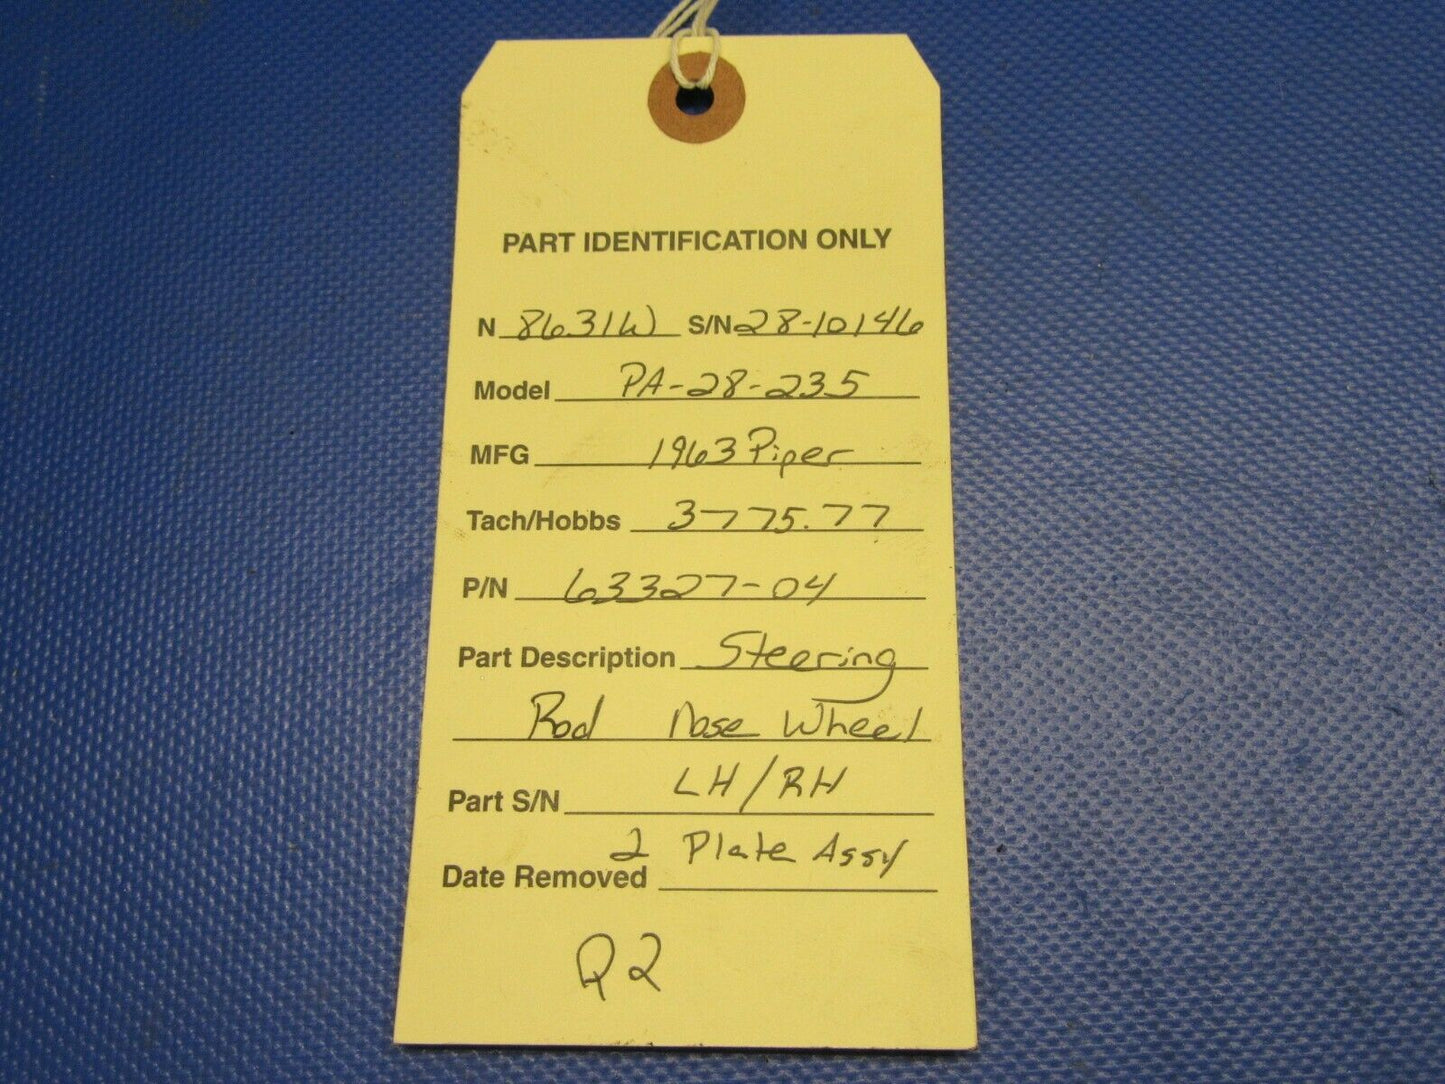 PART IDENTIFICATION ONLY
N 8631W S/N 28-10146
Model PA-28-235
MFG 1963 Piper
Tach/Hobbs 3775.77
P/N 63327-04
Part Description Steering
Rod Nose Wheel
Part S/N LH/RH
2 Plate Assy
Date Removed
Q2